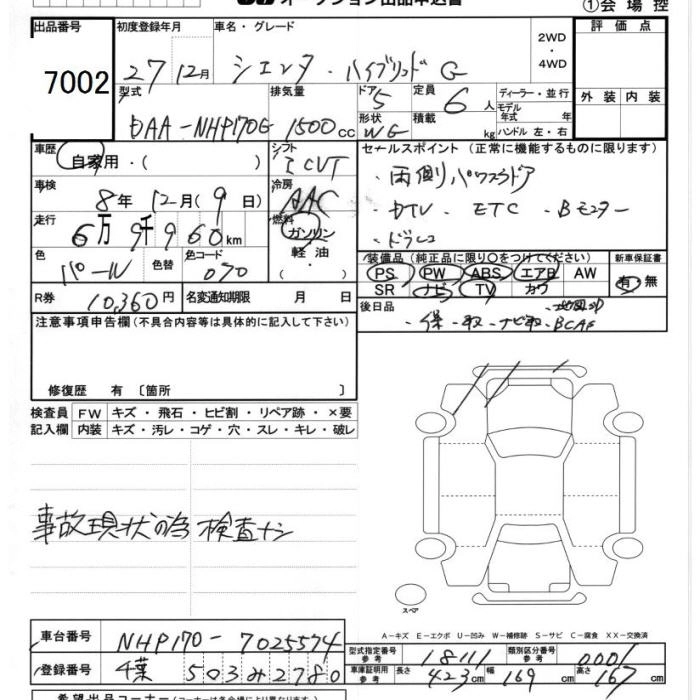 オークション出品申込書
①会場控
出品番号
7002
初度登録年月
27年12月
車名・グレード
シエンタ・ハイブリッド G
2WD
・
4WD
評価点
外装 内装
型式
DAA-NHP170G
排気量
1500cc
ドア
5
定員
6人
ディーラー・並行
モデル
年式 年
形状
WG
積載
kg
ハンドル 左・右
車歴
自家用・( )
シフト
I CVT
セールスポイント (正常に機能するものに限ります)
・両側パワスラドア
・DTV ・ETC ・Bモニター
・ドラレコ
車検
8年12月(9日)
冷房
AAC
走行
6万9千960km
燃料
ガソリン
軽油
・( )
色
パール
色替
色コード
070
R券
10,360円
名変通知期限 月 日
装備品 (純正品に限り○をつけてください)
PS PW ABS エアB AW
SR ナビ TV カワ
新車保証書
有・無
後日品
・保・取・ナビ取・BCAS
注意事項申告欄 (不具合内容等は具体的に記入して下さい)
修復歴 有 〔箇所 〕
検査員
記入欄
FW キズ・飛石・ヒビ割・リペア跡・×要
内装 キズ・汚レ・コゲ・穴・スレ・キレ・破レ
事故現状の為 検査ナシ
スペア
A-キズ E-エクボ U-凹み W-補修跡 S-サビ C-腐食 XX-交換済
車台番号
NHP170-7025574
登録番号
千葉 503 み 2780
型式指定番号
参考
18111
類別区分番号
参考
0001
車庫証明用
参考
長さ
423cm
幅
169cm
高さ
167cm
希望出品コーナー